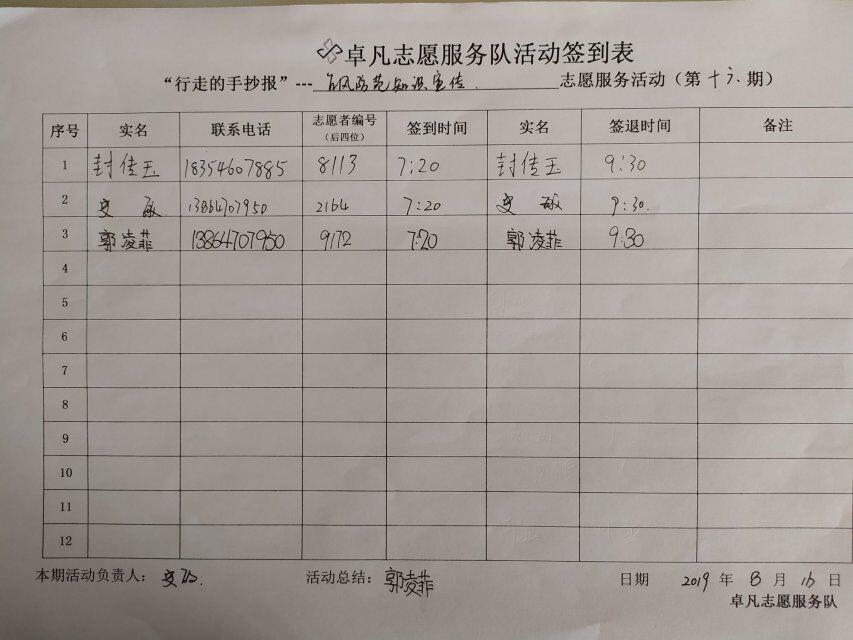 卓凡志愿服务队活动签到表
“行走的手抄报”---台风防范知识宣传 志愿服务活动(第十六期)
序号 实名 联系电话 志愿者编号(后四位) 签到时间 实名 签退时间 备注
1 封佳玉 18354607885 8113 7:20 封佳玉 9:30
2 敏 13864707950 2164 7:20 敏 9:30.
3 郭凌菲 13864707950 9172 7:20 郭凌菲 9:30
4
5
6
7
8
9
10
11
12
本期活动负责人: 活动总结:郭凌菲 日期 2019年8月16日
卓凡志愿服务队